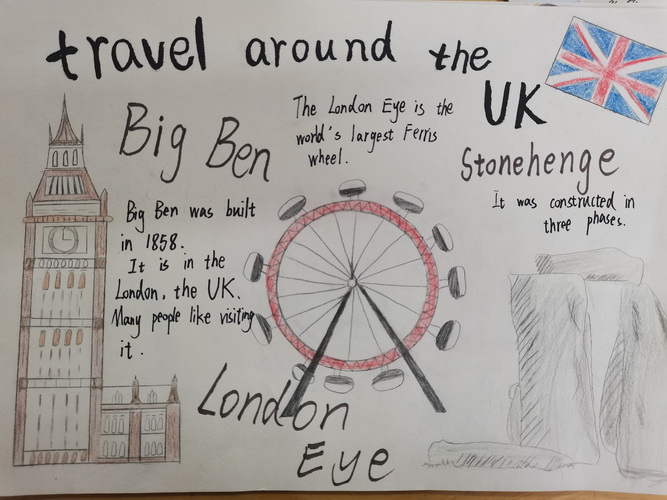 travel around the
UK
Big Ben
Big Ben was built
in 1858.
It is in the
London, the UK.
Many people like visiting
it.
The London Eye is the
world's largest Ferris
wheel.
Stonehenge
It was constructed in
three phases.
London
Eye